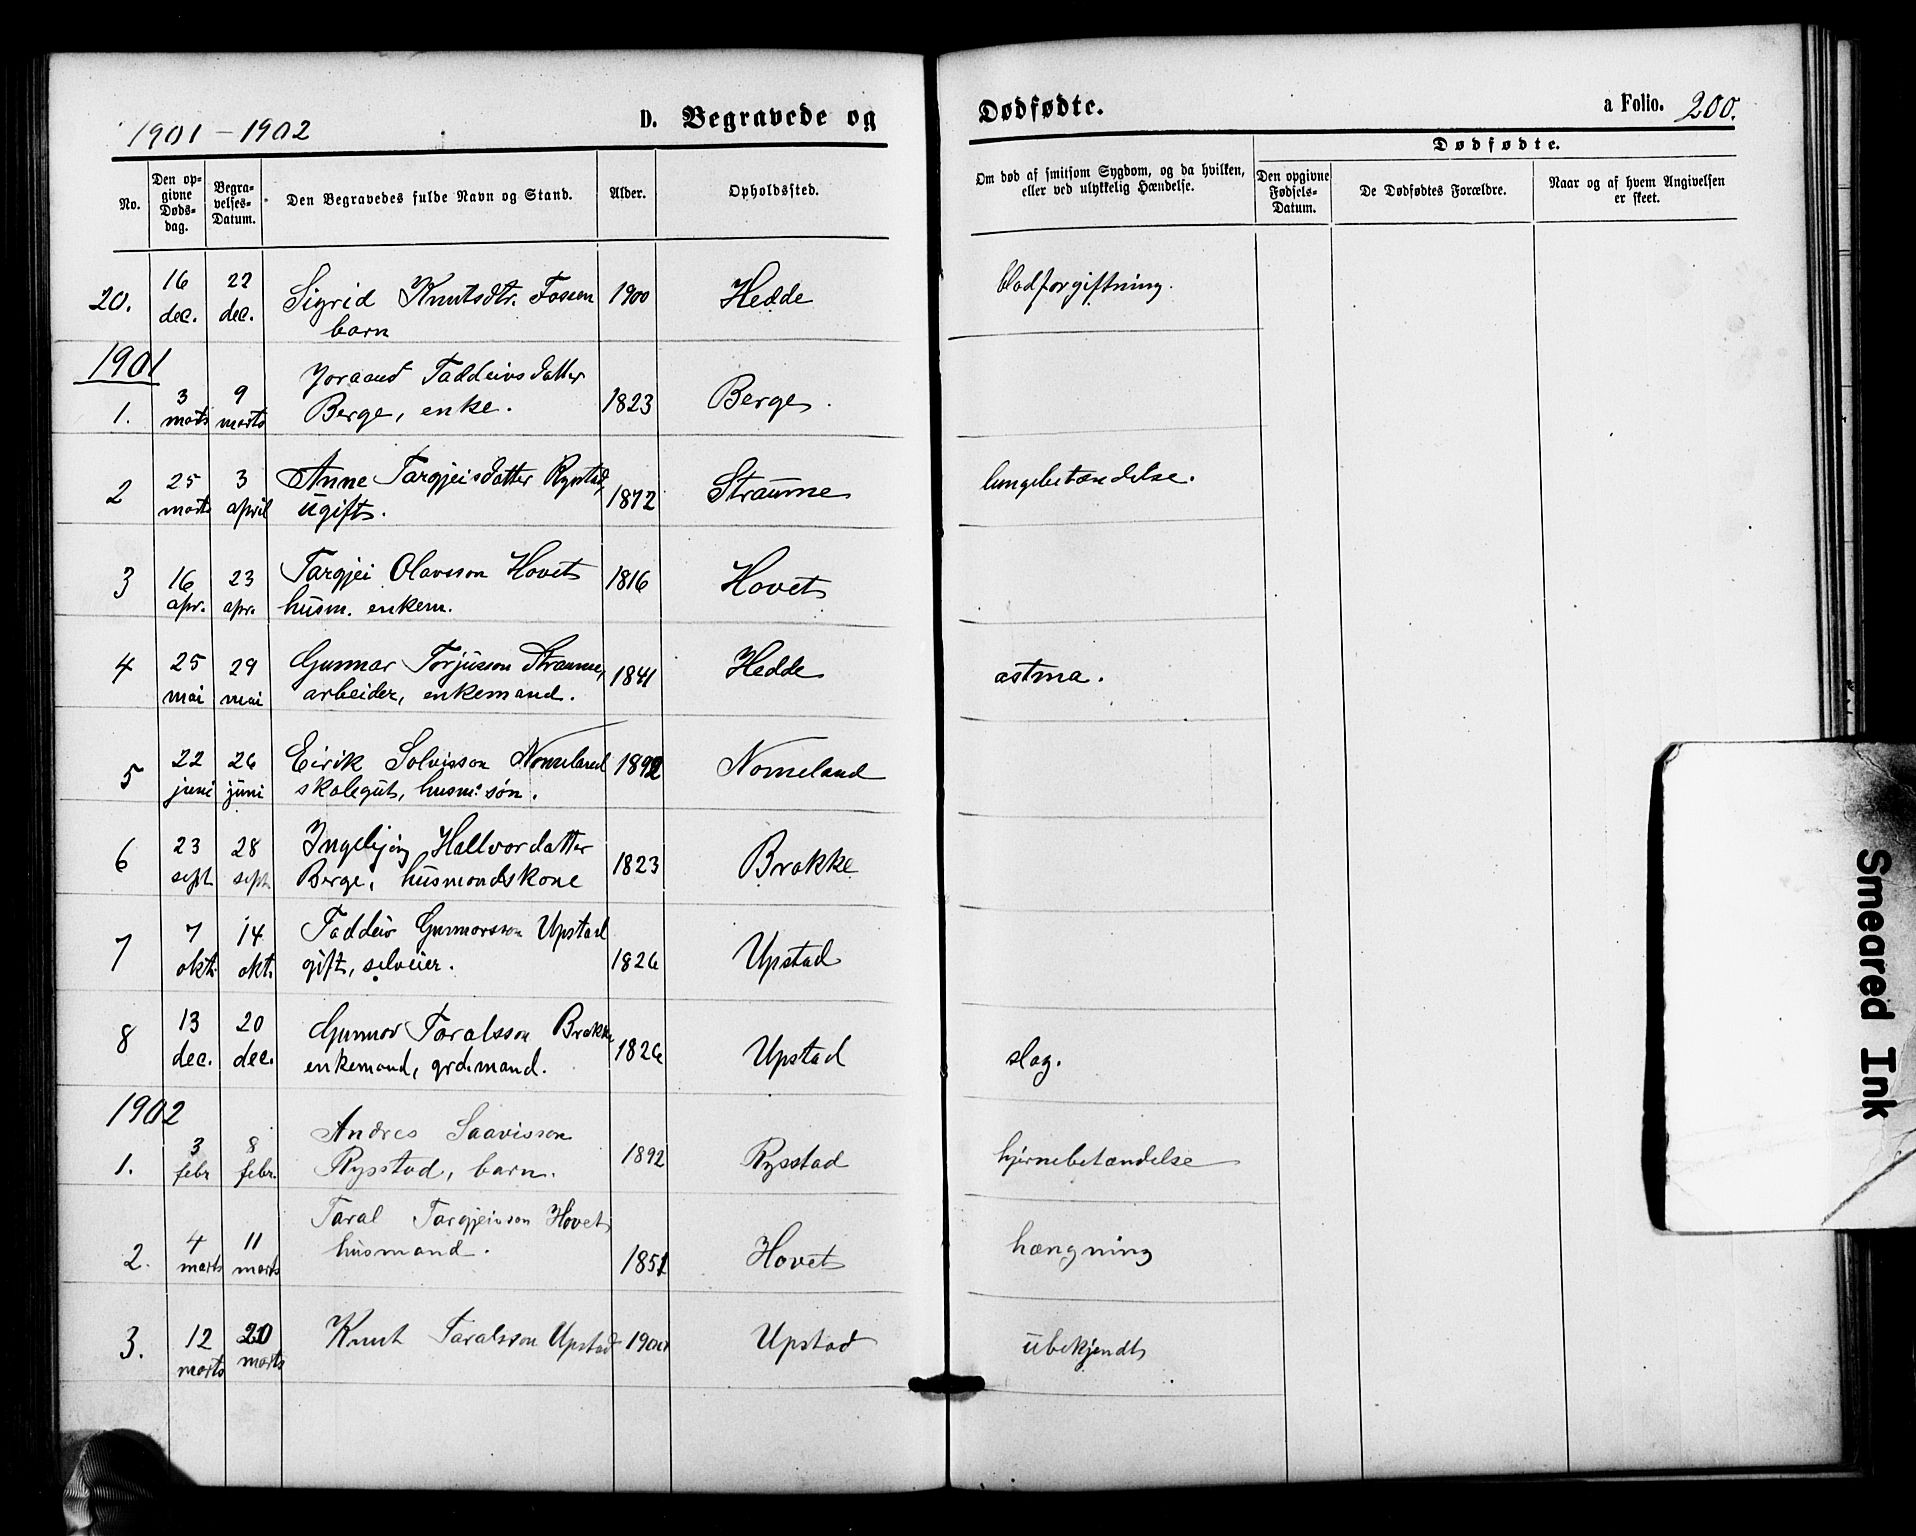 1901 - 1902
D. Begravede og Dødfødte.
a Folio. 200.
No.
Den opgivne Dødsdag.
Begravelses-Datum.
Den Begravedes fulde Navn og Stand.
Alder.
Opholdssted.
Om død af smitsom Sygdom, og da hvilken, eller ved ulykkelig Hændelse.
Dødfødte.
Den opgivne Fødsels-Datum.
De Dødfødtes Forældre.
Naar og af hvem Angivelsen er skeet.
20. 16 dec. 22 dec. Sigrid Knutsdtr. barn 1900 Hedde blodforgiftning.
1901
1. 3 marts 9 marts Joraand Taddeivsdatter Berge, enke. 1823 Berge.
2 25 marts 3 april Anne Targjeisdatter Rystad, ugift. 1872 Straume lungebetændelse.
3 16 apr. 23 apr. Targjei Olavsson Hovet husm. enkem. 1816 Hovet
4 25 mai 29 mai Gunnar Torjusson Straume, arbeider, enkemand. 1841 Hedde astma.
5 22 juni 26 juni Eirik Solvisson Nomeland skolegut, husm: søn. 1892 Nomeland
6 23 sept. 28 sept. Ingebjørg Hallvordatter Berge, husmandskone 1823 Brokke
7 7 okt. 14 okt. Taddeiv Gunnarsson Upstad gift, selveier. 1826 Upstad
8 13 dec. 20 dec. Gunnar Taralsson Brokke enkemand, grdmand. 1826 Upstad slag.
1902
1. 3 febr 8 febr. Andres Saavisson Rysstad, barn. 1892 Rysstad hjernebetændelse
2. 4 marts 11 marts Taral Targjeivson Hovet, husmand. 1851 Hovet hængning
3. 12 marts 20 marts Knut Taralsson Upstad 1900 Upstad ubekjendt
Smeared Ink